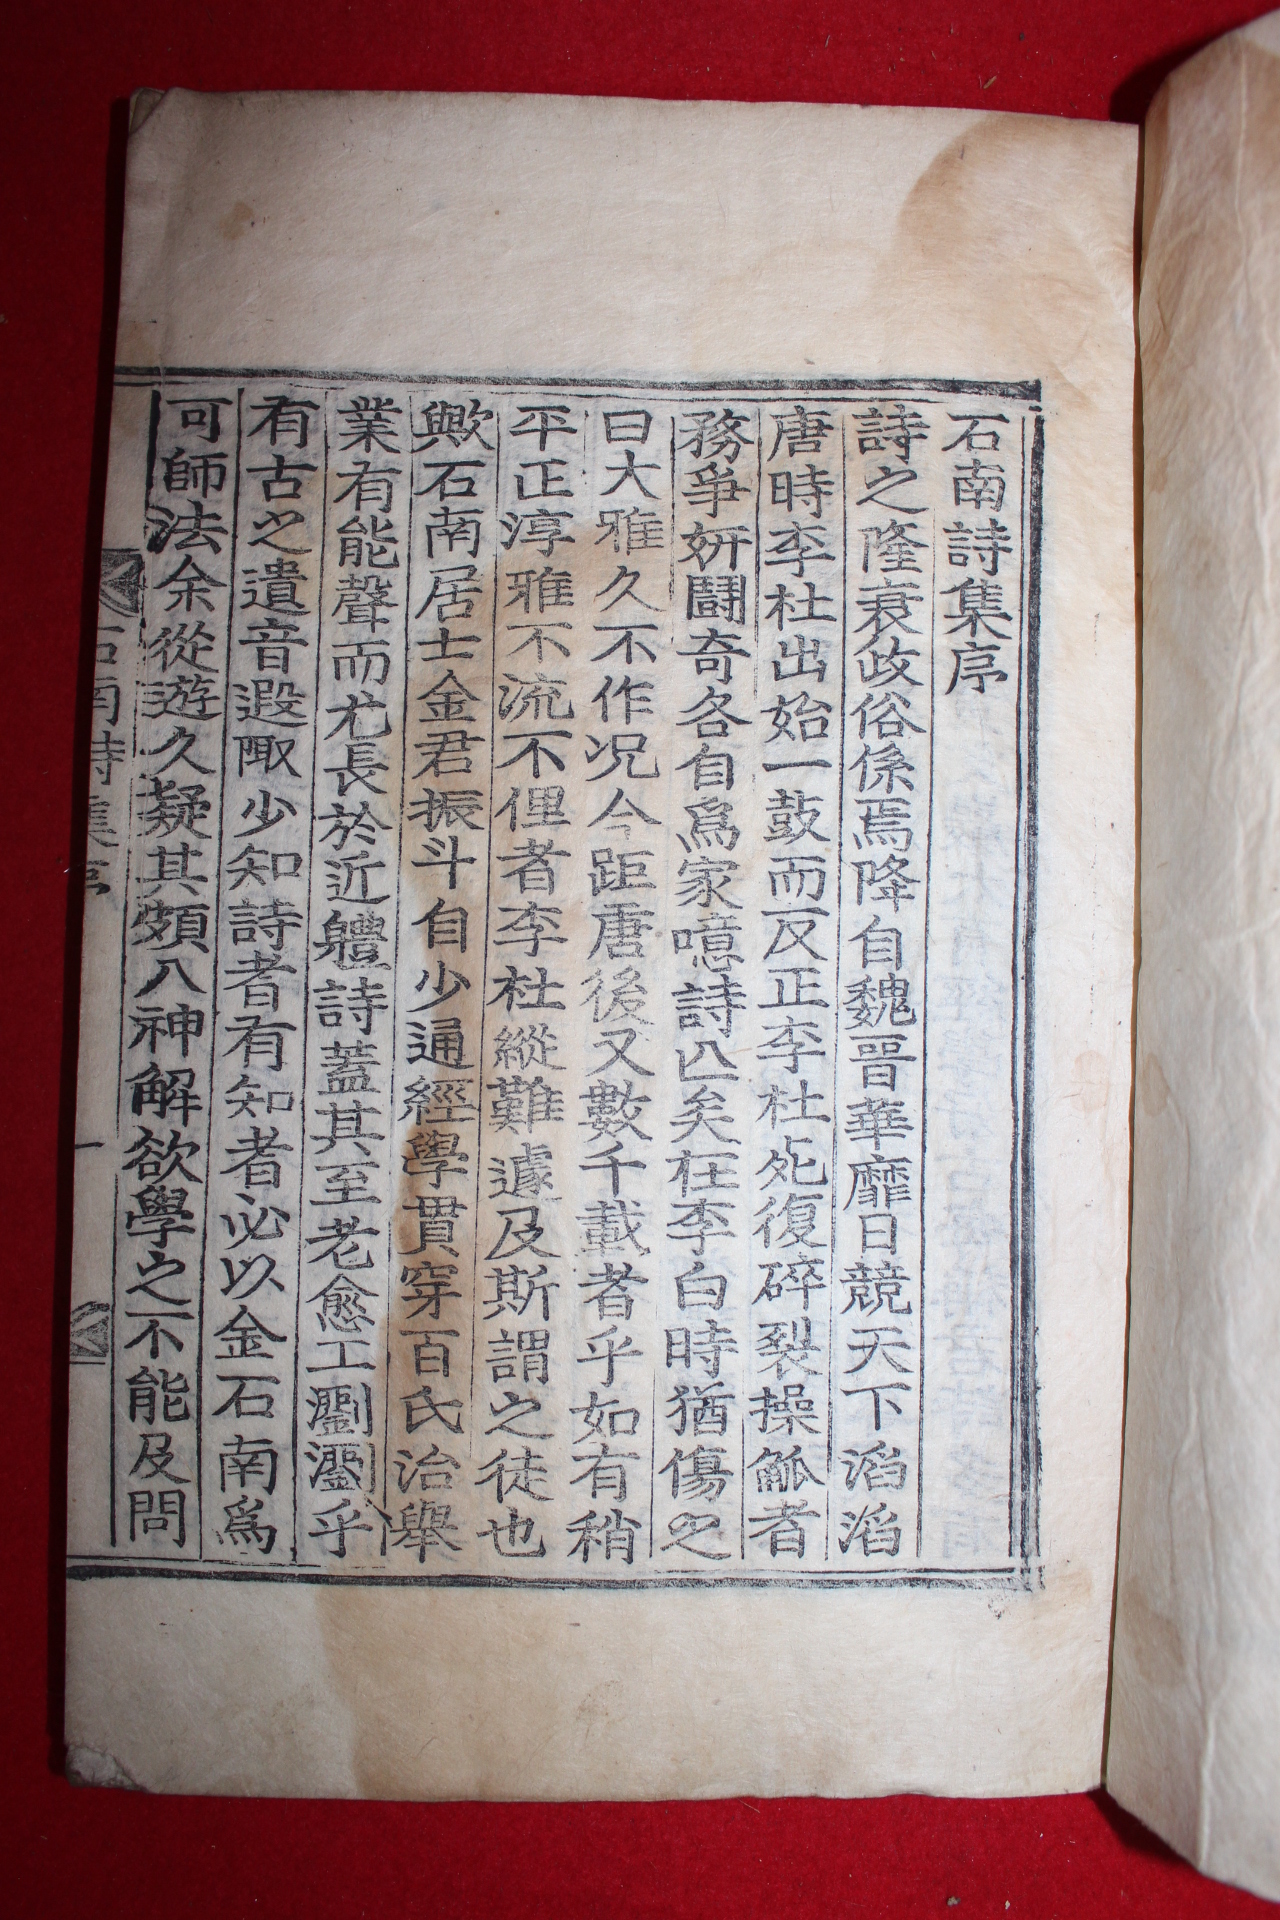 石南詩集序
詩之隆衰政俗係焉降自魏晋華靡日競天下滔滔
唐時李杜出始一鼓而反正李杜死復碎裂操觚者
務爭姸鬪奇各自爲家噫詩亾矣在李白時猶傷之
曰大雅久不作况今距唐後又數千載者乎如有稍
平正淳雅不流不俚者李杜縱難遽及斯謂之徒也
歟石南居士金君振斗自少通經學貫穿百氏治舉
業有能聲而尤長於近軆詩蓋其至老愈工瀏瀏乎
有古之遺音遐陬少知詩者有知者必以金石南爲
可師法余從遊久疑其頗八神解欲學之不能及問
石南詩集序
一